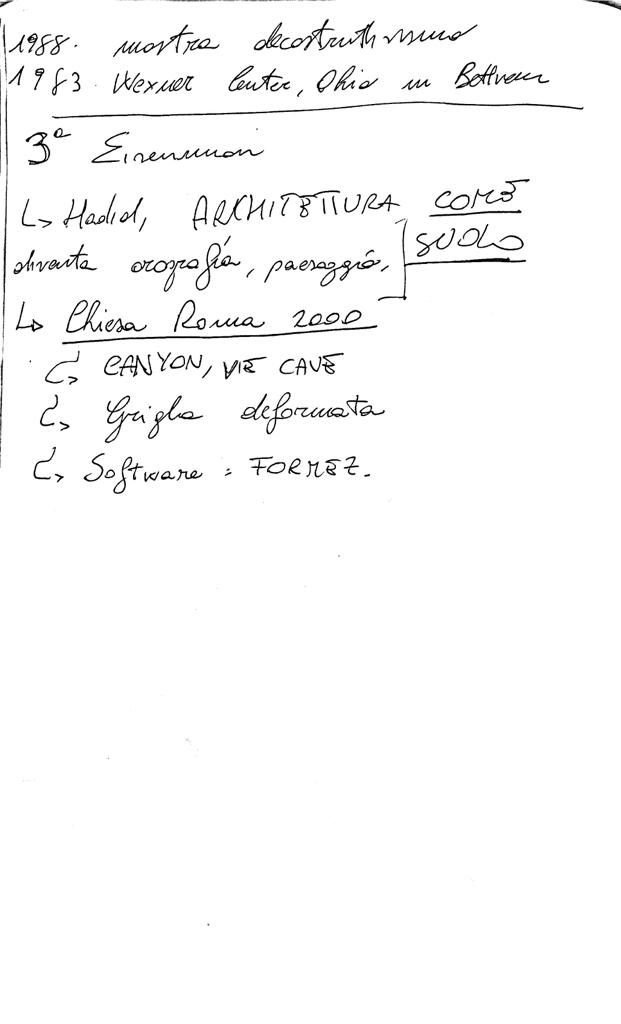 1988. mostra decostruttivismo
1983. Wexner Center, Ohio in
3ª Eisenman
↳ Hadid, ARCHITETTURA COME
diventa orografia, paesaggio, SUOLO
↳ Chiesa Roma 2000
↳ CANYON, VIE CAVE
↳ Griglia deformata
↳ Software: FORMEZ.